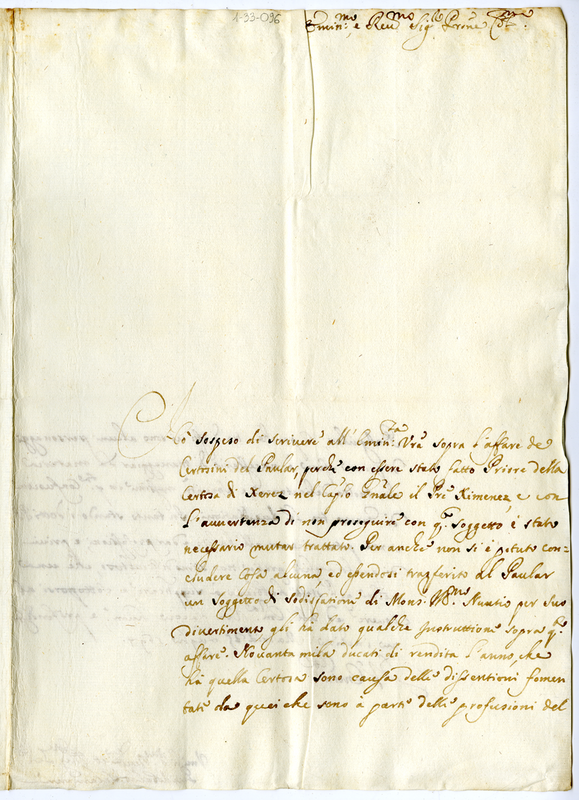 1-93-096
Emin.mo e Reu.mo Sig.r Prone
Hò sospeso di scriuere all' Emin.za Vrã sopra l'affare de
Certosini del Paular, perche con essere stato fatto Priore della
Certosa di Xerez nel Cap.lo Gñale il Prẽ Ximenez, e con
l'auuertenza di non proseguire con q.o soggetto, è stato
necessario mutar trattato. Per anche non si è potuto con-
cludere cosa alcuna ed essendosi trasferito al Paular
un soggetto di sodisfatione di Mons. Nuntio per suo
diuertimento gli hà dato qualche Instruttione sopra q.o
affare. Nouanta mila ducati di rendita l'anno, che
hà quella Certosa sono causa delle dissentioni fomen
tate da quei che sono à parte delle profusioni del